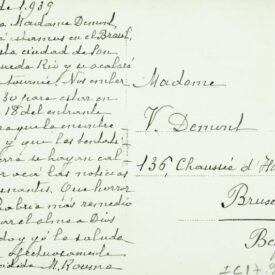 de 1.939
Madame Demont,
á estamos en el Brasil,
sta ciudad de San
queda Rio y se acabará
tournée! Nos embar
30 para estar en
18 del entrante
ra que la encuentre
y que las
erra se hayan cal
or acá las noticias
nantes. Que horror
habrá más remedio
ar el alma a Dios
do y yó la saludo
afectuosamente
M.
Madame
V. Demont
136, Chaussée d'H
Bru
Be